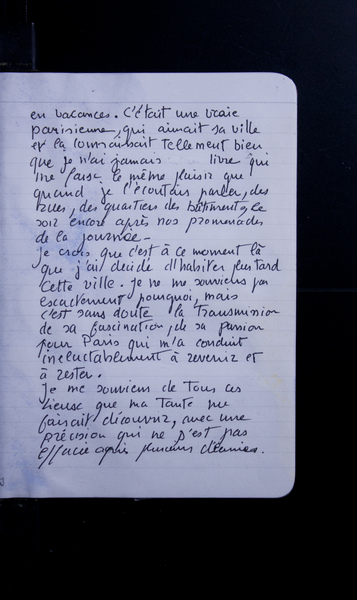 en vacances. C'était une vraie
parisienne, qui aimait sa ville
et la connaissait tellement bien
que je n'ai jamais livre qui
me fasse le même plaisir que
quand je l'écoutais parler, des
rues, des quartiers des bâtiments, le
soir encore après nos promenades
de la journée -
Je crois que c'est à ce moment là
que j'ai décidé d'habiter plus tard
cette ville. Je ne me souviens pas
exactement pourquoi, mais
c'est sans doute la transmission
de sa fascination, de sa passion
pour Paris qui m'a conduit
inéluctablement à revenir et
à rester.
Je me souviens de tous ces
lieux que ma tante me
faisait découvrir, avec une
précision qui ne s'est pas
effacée après plusieurs décennies.